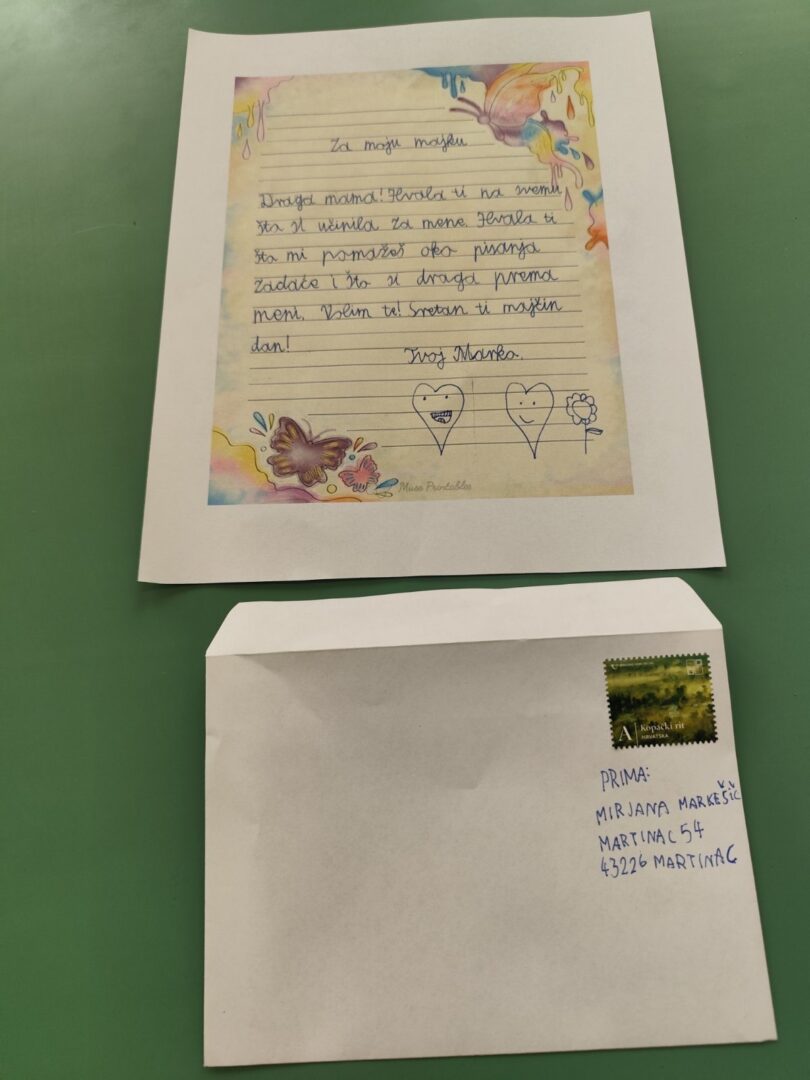 Za moju majku
Draga mama! Hvala ti na svemu
što si učinila za mene. Hvala ti
što mi pomažeš oko pisanja
zadaće i što si draga prema
meni. Volim te! Sretan ti majčin
dan!
Tvoj Marko.
Muse Printables
A Kopački rit
HRVATSKA
PRIMA:
MIRJANA MARKEŠIĆ
MARTINAC 54
43226 MARTINAC